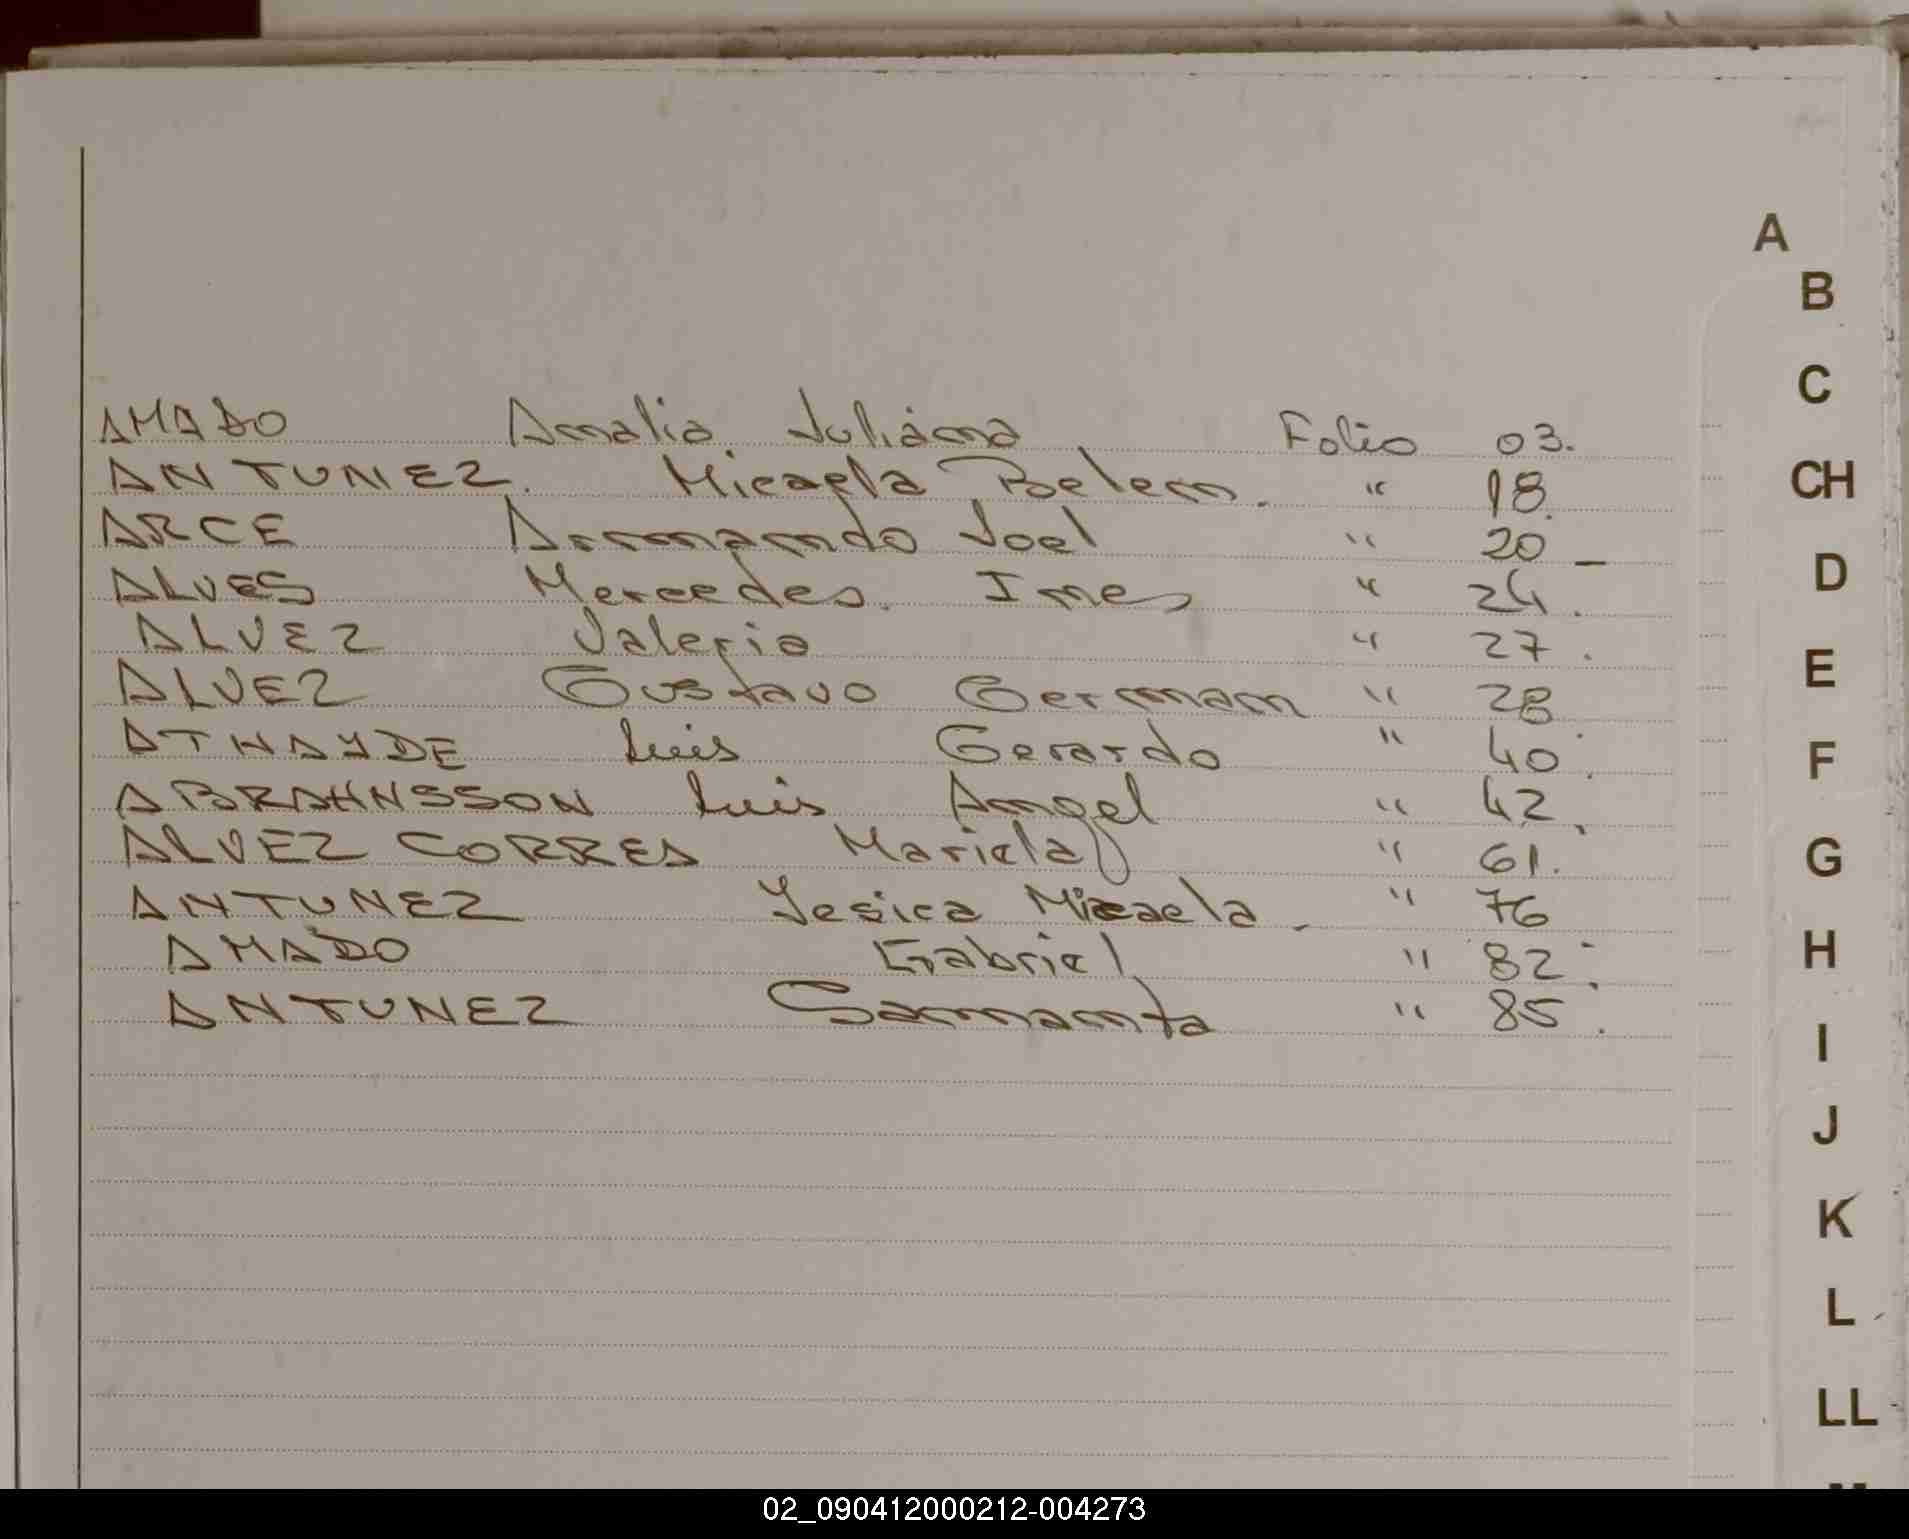 A
B
C
CH
D
E
F
G
H
I
J
K
L
LL
AMADO Amalia Juliana Folio 03.
ANTUNEZ. Micaela Belen. " 18.
ARCE Armando Joel " 20 _
ALVES Mercedes. Ines " 24.
ALVEZ Valeria " 27.
ALVEZ Gustavo German " 28
ATHAYDE Luis Gerardo " 40.
ABRAHNSSON Luis Angel " 42.
ALVEZ CORREA Mariela " 61.
ANTUNEZ Yesica Micaela. " 76
AMADO Gabriel " 82.
ANTUNEZ Samanta " 85.
02_090412000212-004273